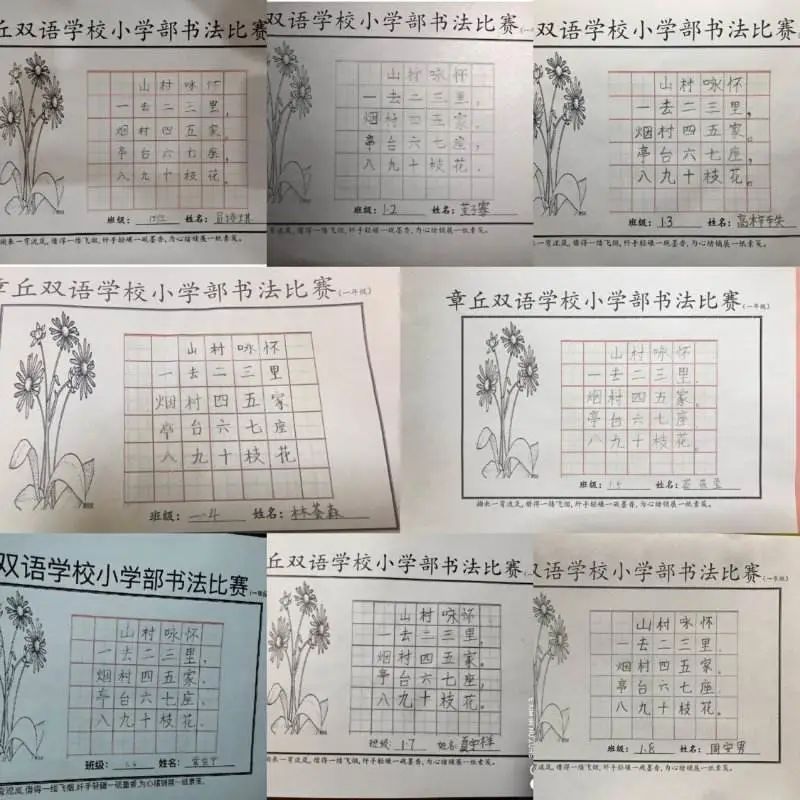 丘双语学校小学部书法比赛
山村咏怀
一去二三里，
烟村四五家。
亭台六七座，
八九十枝花。
班级：
姓名：
掬来一弯流岚,借得一绺飞烟,纤手轻碾一砚墨香,为心情铺展一纸素笺。
双语学校小学部书法比赛(一
山村咏怀
一去二三里，
烟村四五家。
亭台六七座，
八九十枝花。
班级： 1·2 姓名：
借得一绺飞烟,纤手轻碾一砚墨香,为心情铺展一纸素笺。
双语学校小学部书法比赛
山村咏怀
一去二三里，
烟村四五家。
亭台六七座，
八九十枝花。
班级： 1.3 姓名：
借得一绺飞烟,纤手轻碾一砚墨香,为心情铺展一纸素笺。
章丘双语学校小学部书法比赛(一年级)
山村咏怀
一去二三里
烟村四五家
亭台六七座
八九十枝花
班级： 一.4 姓名：
章丘双语学校小学部书法比赛(一年级)
山村咏怀
一去二三里.
烟村四五家。
亭台六七座
八九十枝花。
班级： 1.5 姓名：
掬来一弯流岚,借得一绺飞烟,纤手轻碾一砚墨香,为心情铺展一纸素笺。
双语学校小学部书法比赛(一年级
山村咏怀
一去二三里.
烟村四五家.
亭台六七座.
八九十枝花.
班级： 姓名：
借得一绺飞烟,纤手轻碾一砚墨香,为心情铺展一纸素笺。
丘双语学校小学部书法比赛(一年级
山村咏怀
一去二三里，
烟村四五家。
亭台六七座，
八九十枝花。
班级： 1·7 姓名：
掬来一弯流岚,借得一绺飞烟,纤手轻碾一砚墨香,为心情铺展一纸素笺。
双语学校小学部书法比赛(一年级)
山村咏怀
一去二三里.
烟村四五家.
亭台六七座.
八九十枝花.
班级： 1.8 姓名： 周安男
借得一绺飞烟,纤手轻碾一砚墨香,为心情铺展一纸素笺。